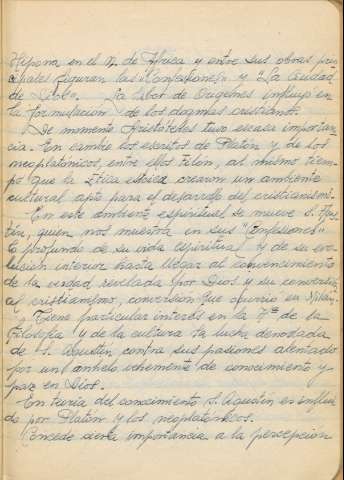 Hipona en el N. de Africa y entre sus obras prin
cipales figuran las "Confesiones" y "La Ciudad
de Dios". La labor de Orígenes influyó en
la formulación de los dogmas cristianos.
De momento Aristóteles tuvo escasa importan
cia. En cambio los escritos de Platón y de los
neoplatónicos, entre ellos Filón, al mismo tiem
po que la Etica estoica crearon un ambiente
cultural apto para el desarrollo del cristianismo.
En este ambiente espiritual se mueve S. Agus
tín, quien nos muestra en sus "Confesiones"
lo profundo de su vida espiritual y de su evo
lución interior hasta llegar al convencimiento
de la verdad revelada por Dios y su conversión
al cristianismo, conversión que ocurrió en Milán.
Tiene particular interés en la Hª de la
Filosofía y de la cultura la lucha denodada
de S. Agustín contra sus pasiones alentado
por un anhelo vehemente de conocimiento y
paz en Dios.
En teoría del conocimiento S. Agustín es influ
do por Platón y los neoplatónicos.
Concede cierta importancia a la percepción